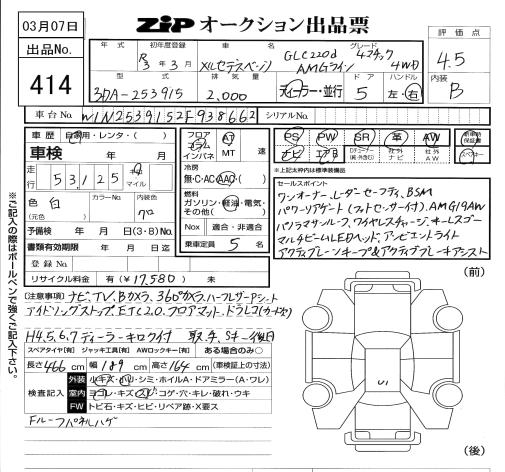 03月07日
ZIP オークション出品票
出品No. 414
年式 初年度登録 R3年3月
車名 メルセデスベンツ GLC220d 4マチック
グレード AMGライン 4WD
評価点 4.5
型式 3DA-253915
排気量 2,000
ディーラー・並行
ドア 5
ハンドル 左・右
内装 B
車台No. W1N2539152F938662 シリアルNo.
車歴 自家用・レンタ・( )
フロア コラム インパネ AT MT 速
PS PW SR 革 AW
ナビ エアB Dチューナー(純・外含む) 社外ナビ 社外AW
新車時保証書
車検 年 月
走行 53,125 km マイル
冷房 無・C・AC・AAC・( )
※上記〆枠内は標準装備品
色 白 (元色) カラーNo. 内装色 クロ
燃料 ガソリン・軽油・電気・その他( )
予備検 年 月 日(3・8)No.
Nox 適合・非適合
書類有効期限 年 月 日
乗車定員 5 名
登録No.
リサイクル料金 有(¥17,580)無
セールスポイント
ワンオーナー、レーダーセーフティ、BSM
パワーリアゲート(フットセンサー付)、AMG19AW
パノラマサンルーフ、ワイヤレスチャージ、キーレスゴー
マルチビームLEDヘッド、アンビエントライト
アクティブレーンキープ&アクティブブレーキアシスト
※ご記入の際はボールペンで強くご記入下さい。
(注意事項) ナビ、TV、Bカメラ、360°カメラ、ハーフレザーシート
アイドリングストップ、ETC2.0、フロアマット、ドラレコ(カード欠)
H4.5.6.7 ディーラーキロク付 取.手、Sキー後日
スペアタイヤ[有] ジャッキ工具[有] AWロックキー[有] ある場合のみ○
長さ 466 cm 幅 189 cm 高さ 164 cm (車検証上の寸法)
検査記入
外装 小キズ・凹・シミ・ホイルA・ドアミラー(A・ワレ)
室内 ヨゴレ・キズ・スレ・コゲ・穴・キレ・破れ・ウキ
FW トビ石・キズ・ヒビ・リペア跡・X要ス
Fルーフパネルハゲ
(前)
(後)